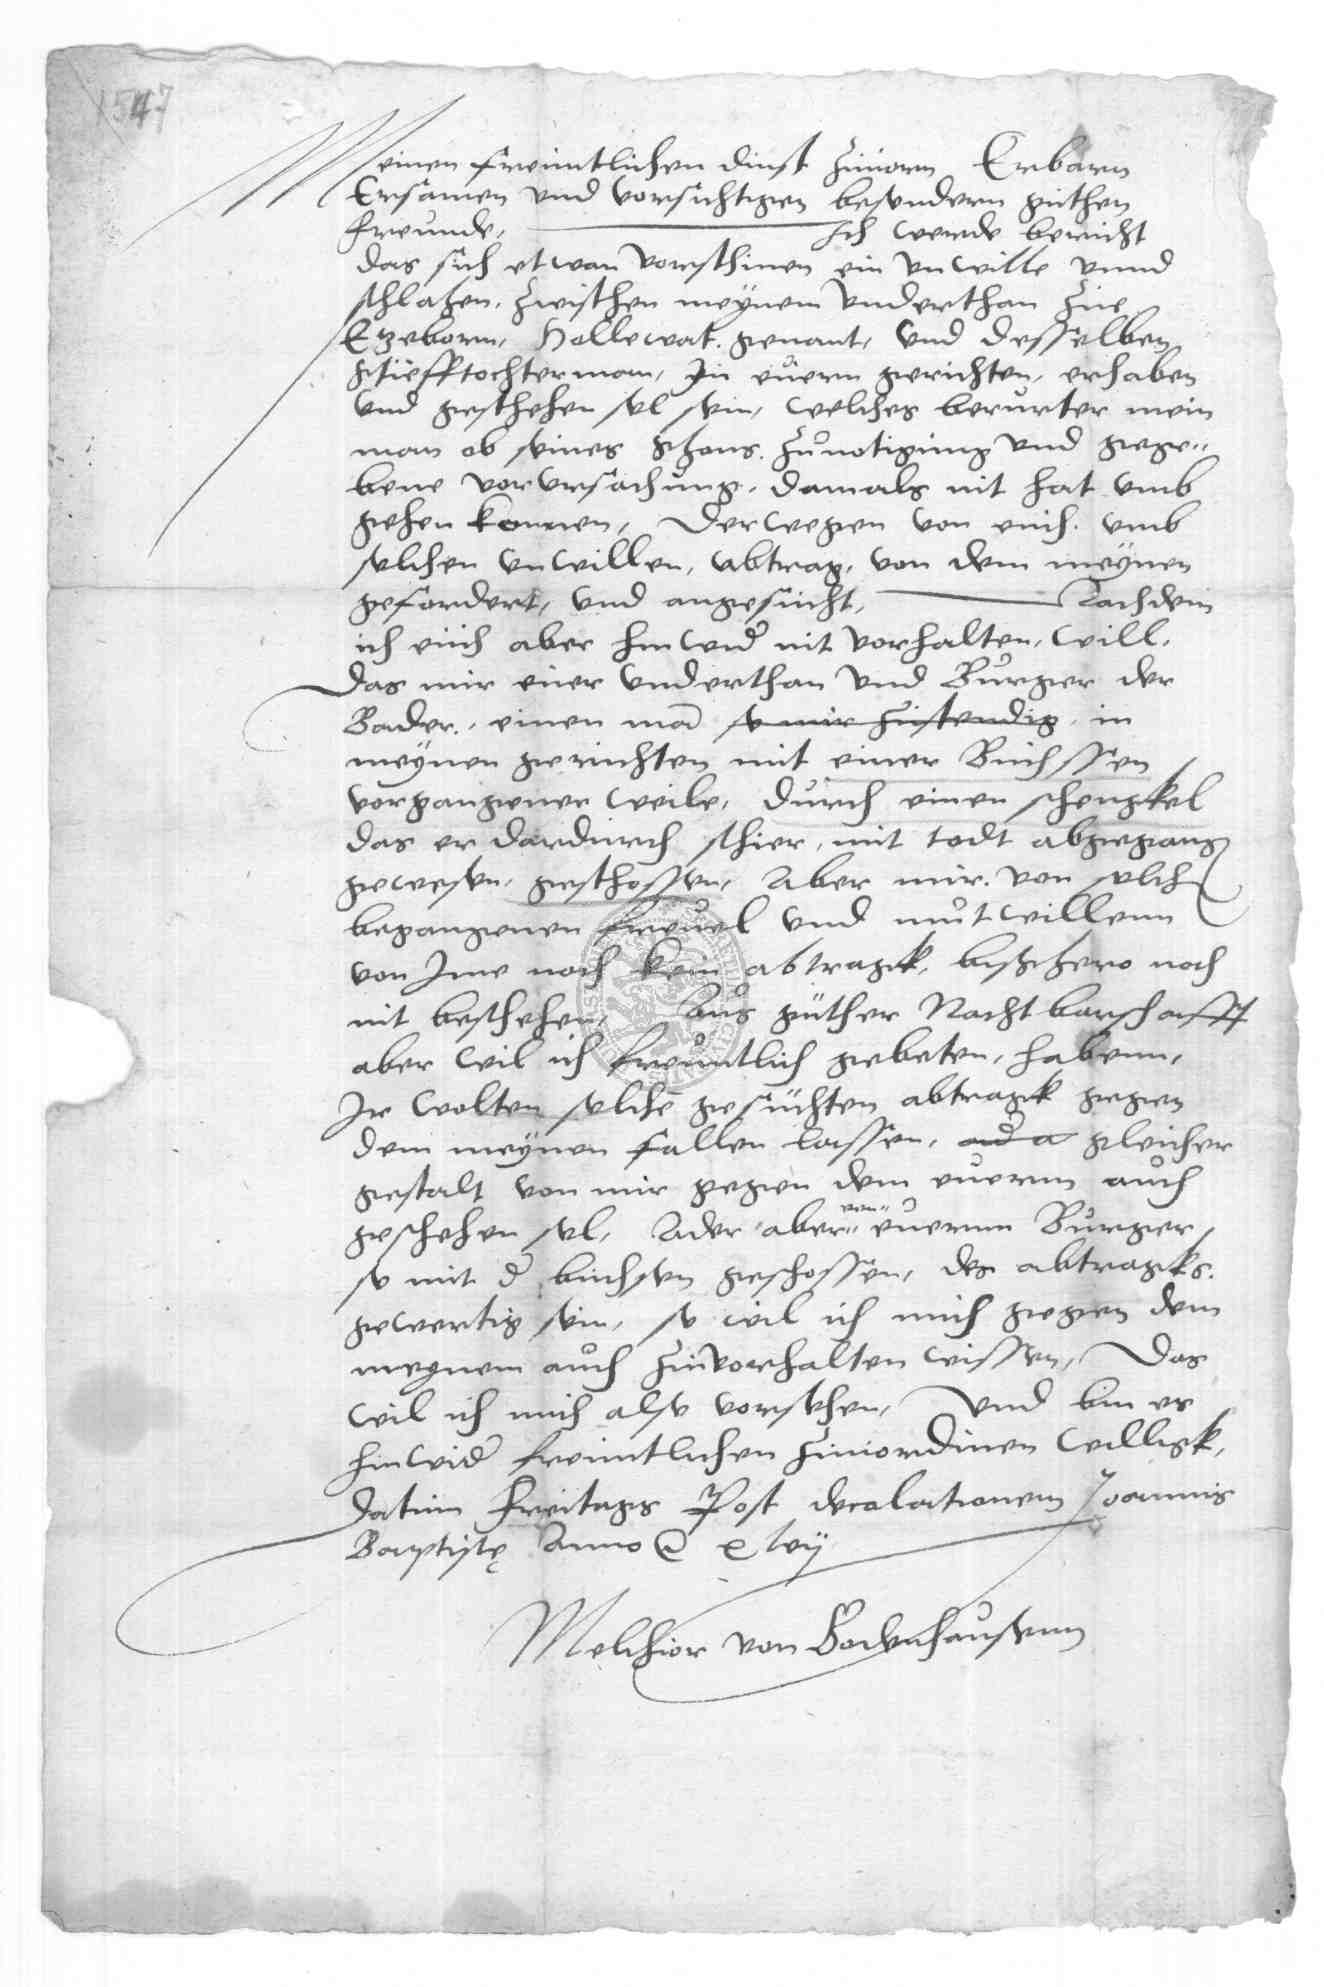 1547
Meinen freuntlichen dinst zuuorn Erbarn
Ersamen und vorsichtigen besundern guthen
freunde, Ich werde bericht
das sich etwan vorschinen ein unwille unnd
schlahen, zwischen meynem underthan zue
Etzeborn, Hallewat genant, und desselben
stiefftochterman, In euern gerichten, erhaben
und geschehen sol sein, welches berurter mein
man ob seines zunotigung und gege„
bene vorursachung, damals nit hat umb
gehen konnen, Derwegen von euch umb
solchen unwillen, abtrag, von dem meynen
gefordert, und angesucht, Nachdem
ich euch aber hinwid nit vorhalten will,
Das mir euer underthan und Burger der
Bader, einen man so mir zustendig, in
meynen gerichten mit einer Buchssen
vorgangener weile, durch einen schengkel
das er dardurch schier, mit todt abgegang
gewesen, geschossen, Aber mir von solch
begangenen freuel und mutwillenn
von Ime noch kein abtragk, bißhero noch
nit beschehen, Aus guther Nachtbarschafft
aber wil ich freuntlich gebeten, habenn,
Ir wolten solche gesuchten abtragk gegen
dem meynen fallen lassen, gleicher
gestalt von mir gegen dem euernn auch
geschehen sol, Ader aber euernn Burger
so mit d buchsen geschossen, des abtragks
gewertig sein, so wil ich mich gegen dem
meynem auch zuuorhalten wissen, Das
wil ich mich also vorsehen, Und bin es
hinwid freuntlichen zuuordinen willigk,
Datum Freitags Post decolationem Joannis
Baptistę Anno xlvij
Melchior von Bodenhausenn